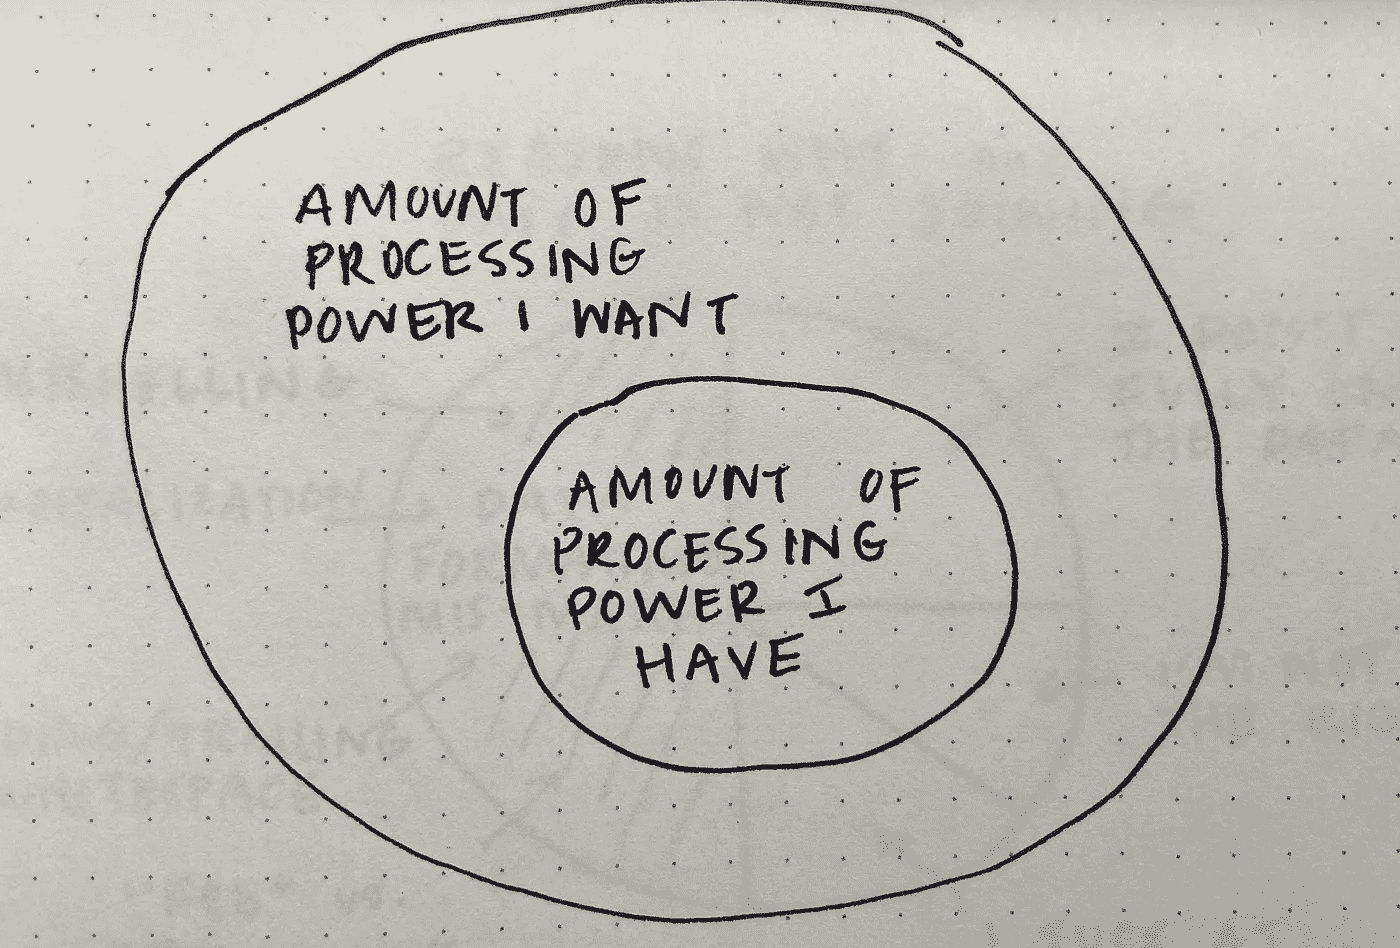 AMOUNT OF
PROCESSING
POWER I WANT
AMOUNT OF
PROCESSING
POWER I
HAVE